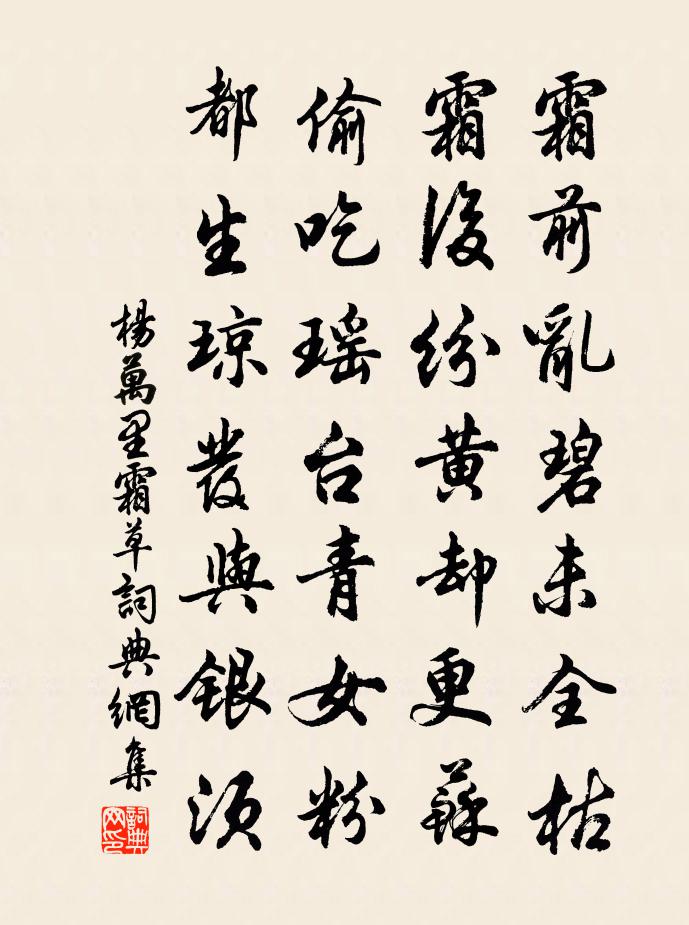 霜前亂碧未全枯
霜後紛黃却更蘇
偷吃瑶台青女粉
都生琼發與銀须
楊萬里霜草詞典網集
詞典網印